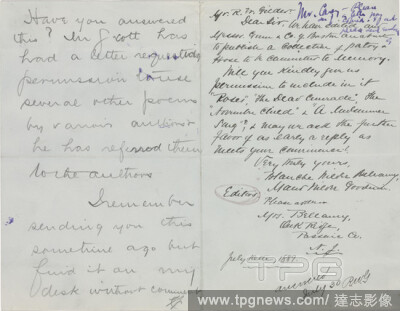 Have you answered
this? Mr Scott has
had a letter requesting
permission to use
several other poems
by various authors &
he has referred them
to the authors
I remember
sending you this
sometime ago but
find it on my
desk without comment
Mr. R. W. Gilder.
Dear Sir:
to publish a collection of poetry &
prose to be committed to memory.
Will you kindly give us
permission to include in it
"The Dear Comrade", "The
& "A Midsummer
Song", & may we ask the further
favor of as early a reply as
meets your convenience?
Very truly yours,
Blanche Wilder Bellamy,
Maud Wilder Goodwin
Editors
Please address
Mrs. Bellamy,
Passaic Co.
N.J.
July 1889.
answered
July 30 RWG
TPG
www.tpgnews.com / 達志影像